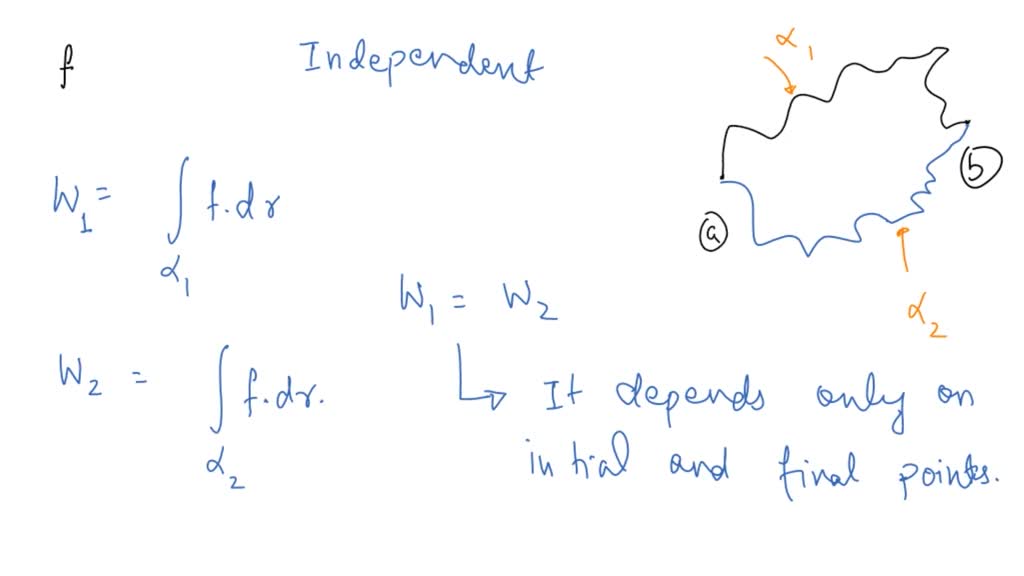 f
Independent
α₁
W₁ = ∫α₁ f.dr
ⓐ
ⓑ
α₂
W₁ = W₂
W₂ = ∫α₂ f.dr.
It depends only on
initial and final points.